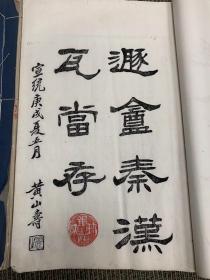 遯盦秦漢
瓦當存
宣統庚戌夏五月
黃山壽